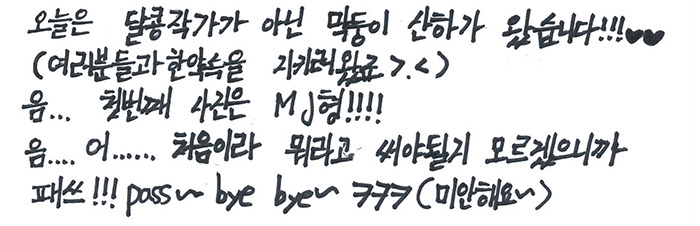 오늘은 달콩작가가 아닌 막둥이 산하가 왔습니다!!!♥♥
(여러분들과 한약속을 지키러왔죠 >.<)
음... 첫번째 사진은 MJ형!!!!
음.... 어...... 처음이라 뭐라고 써야될지 모르겠으니까
패쓰!!! pass~ bye bye~ ㅋㅋㅋ (미안해요~)